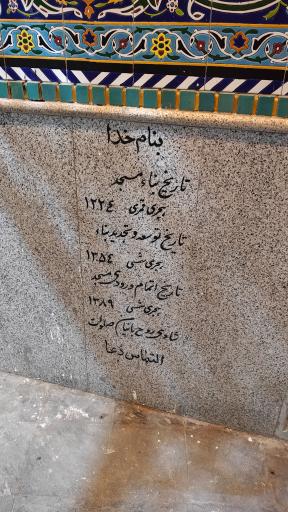 بنام خدا
تاریخ بناء مسجد
هجری قمری ۱۲۲٤
تاریخ توسعه و تجدید بناء
هجری شمسی ۱۳۵٤
تاریخ اتمام ورودی مسجد
هجری شمسی ۱۳۸۹
شادی روح بانیان صلوات
التماس دعا